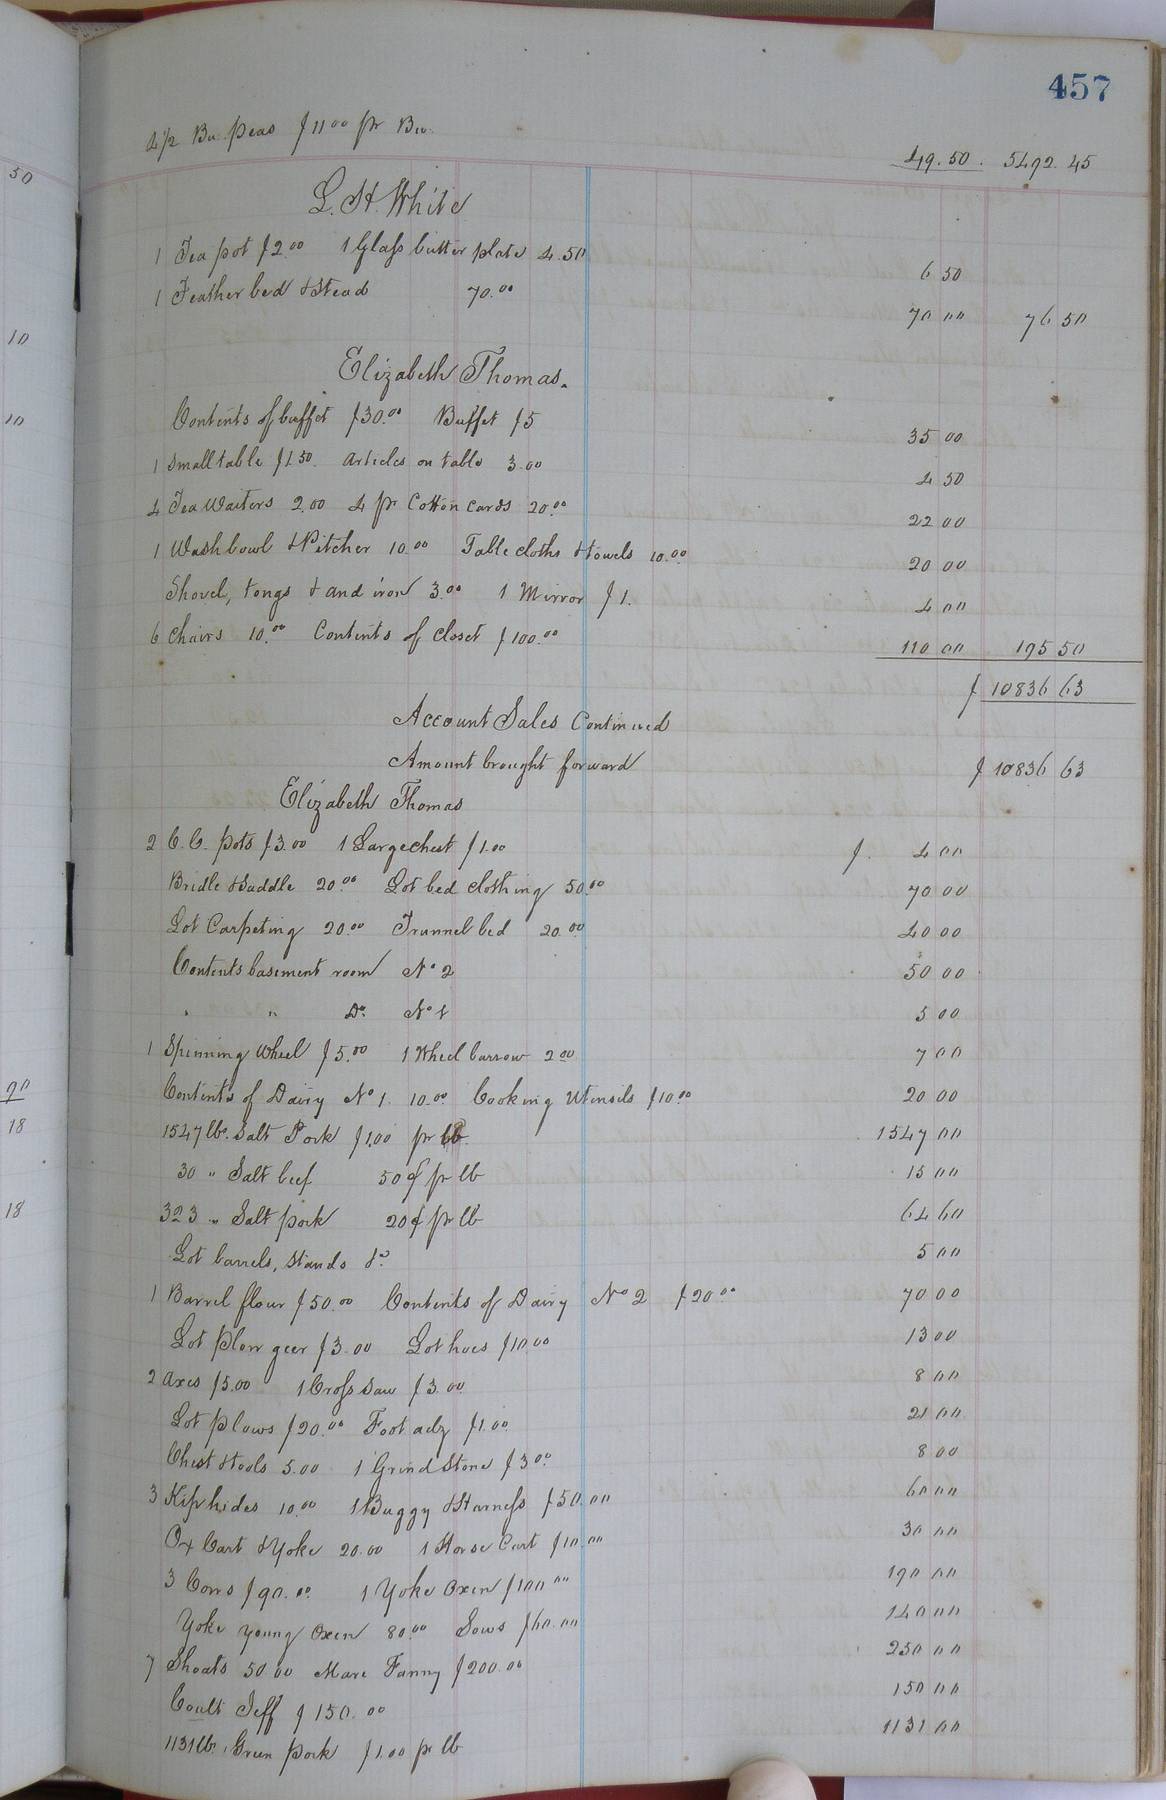 457
4½ Bu. peas $11 00 pr Bu. 49.50. 5492.45
L. H. White
1 Tea pot $2.00 1 Glass butter plate 4.50 6 50
1 Feather bed & Stead 70.00 70 00 76 50
Elizabeth Thomas.
Contents of buffet $30.00 Buffet $5 35 00
1 Small table $1.50. Articles on table 3.00 4 50
4 Tea Waiters 2.00 4 pr Cotton cards 20.00 22 00
1 Wash bowl & Pitcher 10.00 Table cloths & towels 10.00 20 00
Shovel, tongs & and iron 3.00 1 Mirror $1. 4 00
6 Chairs 10.00 Contents of closet $100.00 110 00 195 50
$ 10836 63
Account Sales Continued
Amount brought forward $ 10836 63
Elizabeth Thomas
2 C. C. pots $3.00 1 Large chest $1.00 $. 4 00
Bridle & Saddle 20.00 Lot bed clothing 50.00 70 00
Lot Carpeting 20.00 Trunnel bed 20.00 40 00
Contents basement room No 2 50 00
" " Do. No 1 5 00
1 Spinning Wheel $5.00 1 Wheel barrow 2.00 7 00
Contents of Dairy No 1. 10.00 Cooking Utensils $10.00 20 00
1547 lbs. Salt Pork $1.00 pr lb. 1547 00
30 " Salt beef 50¢ pr lb 15 00
323 " Salt pork 20¢ pr lb 64 60
Lot barrels, stands &c 5 00
1 Barrel flour $50.00 Contents of Dairy No 2 $20.00 70 00
Lot plow geer $3.00 Lot hoes $10.00 13 00
2 Axes $5.00 1 Cross Saw $3.00 8 00
Lot plows $20.00 Foot adz $1.00 21 00
Chest & tools 5.00 1 Grind Stone $3.00 8 00
3 Kip hides 10.00 1 Buggy & Harness $50.00 60 00
Ox Cart & Yoke 20.00 1 Horse Cart $10.00 30 00
3 Cows $90.00 1 Yoke Oxen $100 00 190 00
Yoke young Oxen 80.00 Sows $60.00 140 00
7 Shoats 50.00 Mare Fanny $200.00 250 00
Coult Jeff $150.00 150 00
1131 lbs. Green pork $1.00 pr lb 1131 00
50
10
10
90
18
18